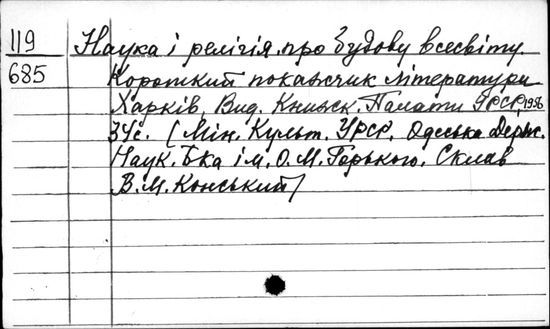 119
685
Наука і релігія про будову всесвіту.
Короткий покажчик літератури
Харків, Вид. Книжк. Палати УРСР, 1956
34с. [Мін. Культ. УРСР. Одеська Держ.
Наук. Б-ка ім. О. М. Горького. Склав
В. М. Конський]